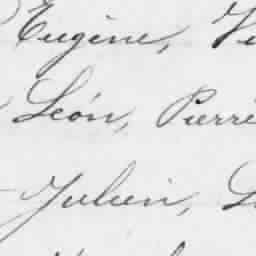 Eugène,
León, Pierre
Julien,